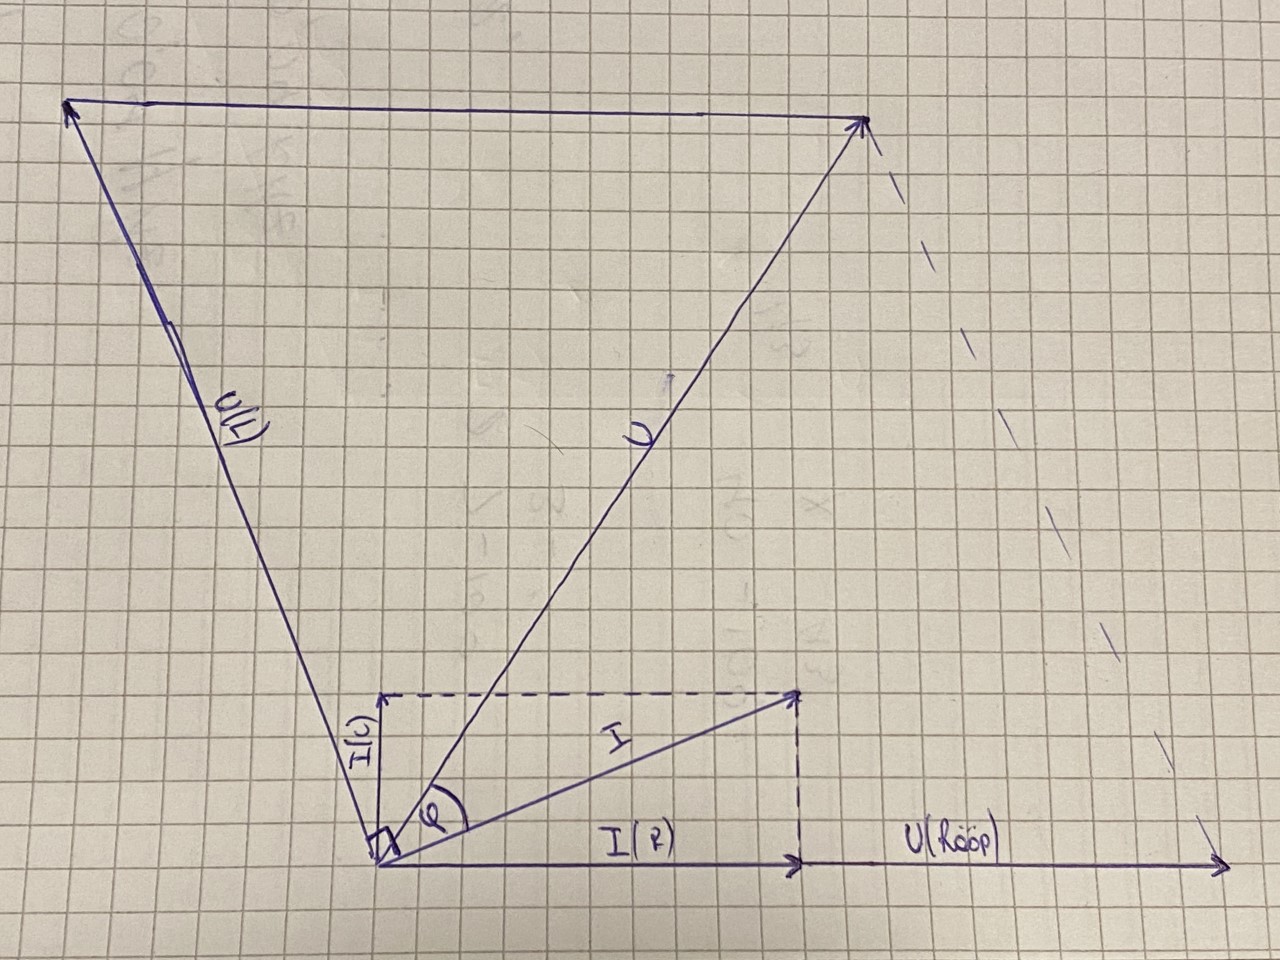 U(L)
U
I(C)
I
φ
I(R)
U(Rööp)